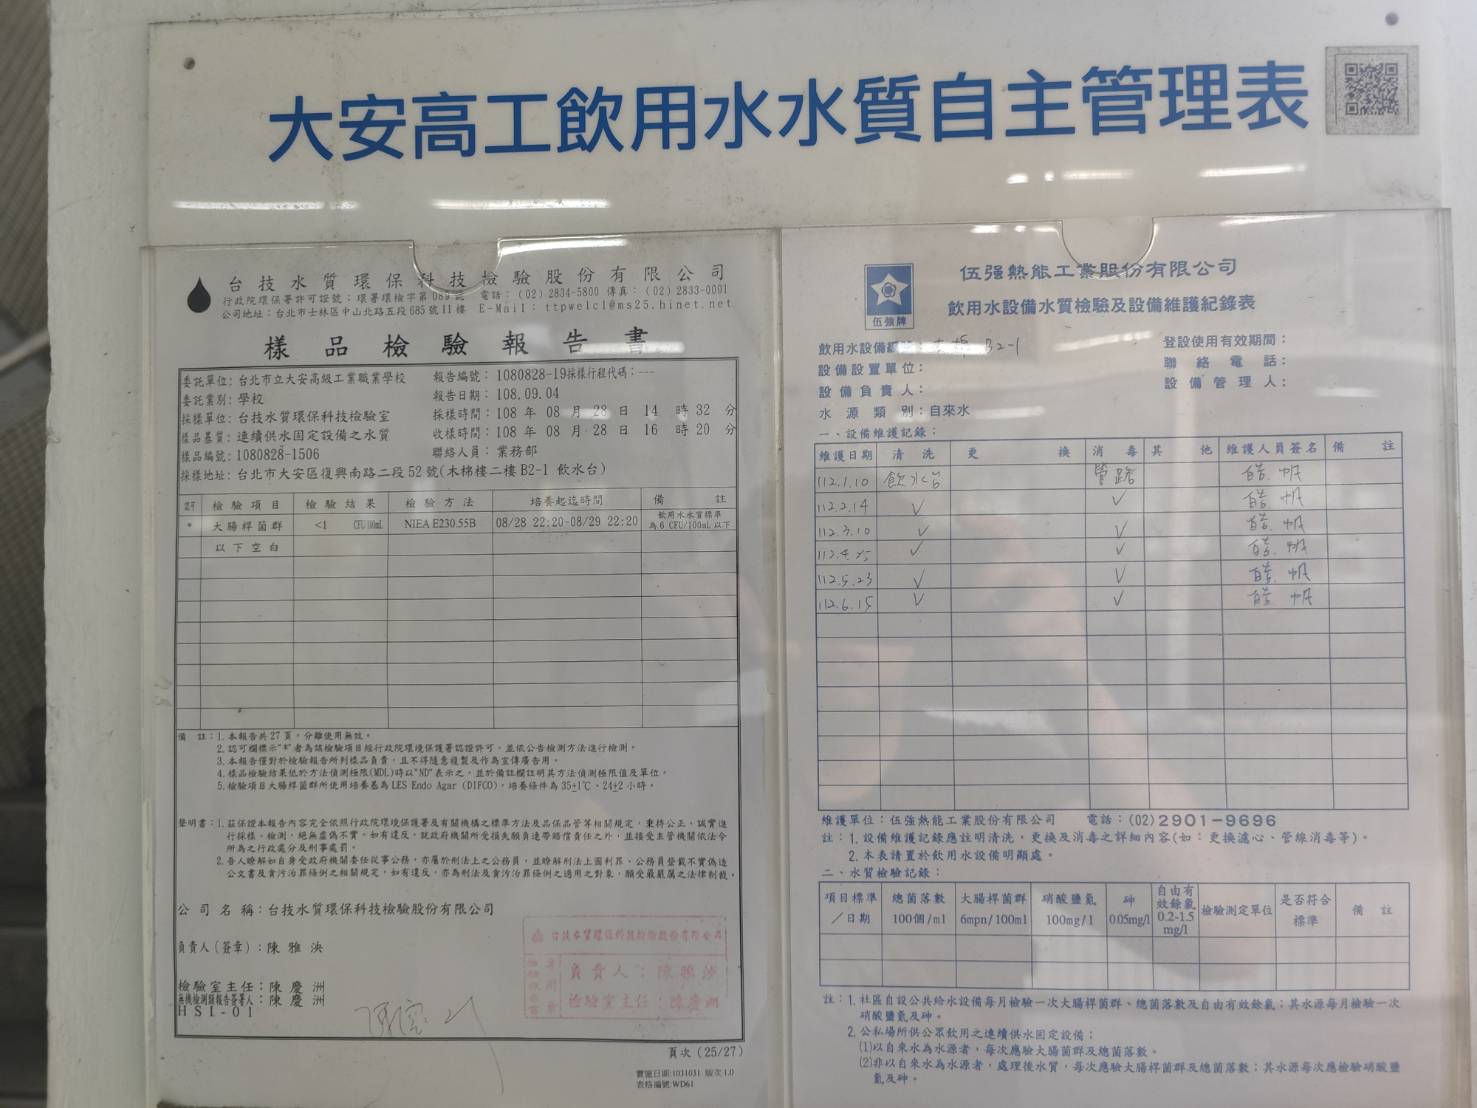 大安高工飲用水水質自主管理表
台技水質環保科技檢驗股份有限公司
行政院環保署許可證號：環署環檢字第 電話：(02) 2834-5800 傳真：(02) 2833-0001
公司地址：台北市士林區中山北路五段685號11樓 E-Mail： ttpwelcl@ms25.hinet.net
樣品檢驗報告書
委託單位：台北市立大安高級工業職業學校 報告編號：1080828-19採樣行程代碼：---
委託業別：學校 報告日期：108.09.04
採樣單位：台技水質環保科技檢驗室 採樣時間：108 年 08 月 28 日 14 時 32 分
樣品基質：連續供水固定設備之水質 收樣時間：108 年 08 月 28 日 16 時 20 分
樣品編號：1080828-1506 聯絡人員：業務部
採樣地址：台北市大安區復興南路二段52號(木棉樓二樓B2-1 飲水台)
認可 檢驗項目 檢驗結果 檢驗方法 培養起迄時間 備註
* 大腸桿菌群 <1 CFU/100mL NIEA E230.55B 08/28 22:20-08/29 22:20 飲用水水質標準為6 CFU/100mL以下
以下空白
備註：1.本報告共27頁，分離使用無效。
2.認可欄標示"*"者為該檢驗項目經行政院環境保護署認證許可，並依公告檢測方法進行檢測。
3.本報告僅對於檢驗報告所列樣品負責，且不得隨意複製及作為宣傳廣告用。
4.樣品檢驗結果低於方法偵測極限(MDL)時以"ND"表示之，並於備註欄註明其方法偵測極限值及單位。
5.檢驗項目大腸桿菌群所使用培養基為LES Endo Agar (DIFCO)，培養條件為35±1℃、24±2小時。
聲明書：1.茲保證本報告內容完全依照行政院環境保護署及有關機構之標準方法及品保品管等相關規定，秉持公正、誠實進
行採樣、檢測，絕無虛偽不實，如有違反，就政府機關所受損失願負連帶賠償責任之外，並接受主管機關依法令
所為之行政處分及刑事處罰。
2.吾人瞭解如自身受政府機關委任從事公務，亦屬於刑法上之公務員，並瞭解刑法上圖利罪、公務員登載不實偽造
公文書及貪污治罪條例之相關規定，如有違反，亦為刑法及貪污治罪條例之適用之對象，願受最嚴厲之法律制裁。
公司名稱：台技水質環保科技檢驗股份有限公司
負責人(簽章)：陳雅泱
檢驗室主任：陳慶洲
無機檢測類報告簽署人：陳慶洲
HSI-01
台技水質環保科技檢驗股份有限公司
負責人：陳雅泱
檢驗室主任：陳慶洲
頁次 (25/27)
實施日期:1031031 版次1.0
表格編號:WD61
伍強牌
伍强熱能工業股份有限公司
飲用水設備水質檢驗及設備維護紀錄表
飲用水設備 B2-1 登設使用有效期間：
設備設置單位： 聯絡電話：
設備負責人： 設備管理人：
水源類別：自來水
一、設備維護記錄：
維護日期 清洗 更換 消毒 其他 維護人員簽名 備註
112.1.10 飲水台 管路
112.2.14 ✓ ✓
112.3.10 ✓ ✓
112.4. ✓ ✓
112.5.23 ✓ ✓
112.6.15 ✓ ✓
維護單位：伍強熱能工業股份有限公司 電話：(02)2901-9696
註：1.設備維護記錄應註明清洗、更換及消毒之詳細內容(如：更換濾心、管線消毒等)。
2.本表請置於飲用水設備明顯處。
二、水質檢驗記錄：
項目標準／日期 總菌落數100個/ml 大腸桿菌群6mpn/100ml 硝酸鹽氮100mg/l 砷0.05mg/l 自由有效餘氯0.2-1.5mg/l 檢驗測定單位 是否符合標準 備註
註：1.社區自設公共給水設備每月檢驗一次大腸桿菌群、總菌落數及自由有效餘氯；其水源每月檢驗一次
硝酸鹽氮及砷。
2.公私場所供公眾飲用之連續供水固定設備：
(1)以自來水為水源者，每次應驗大腸菌群及總菌落數。
(2)非以自來水為水源者，處理後水質，每次應驗大腸桿菌群及總菌落數；其水源每次應檢驗硝酸鹽
氮及砷。